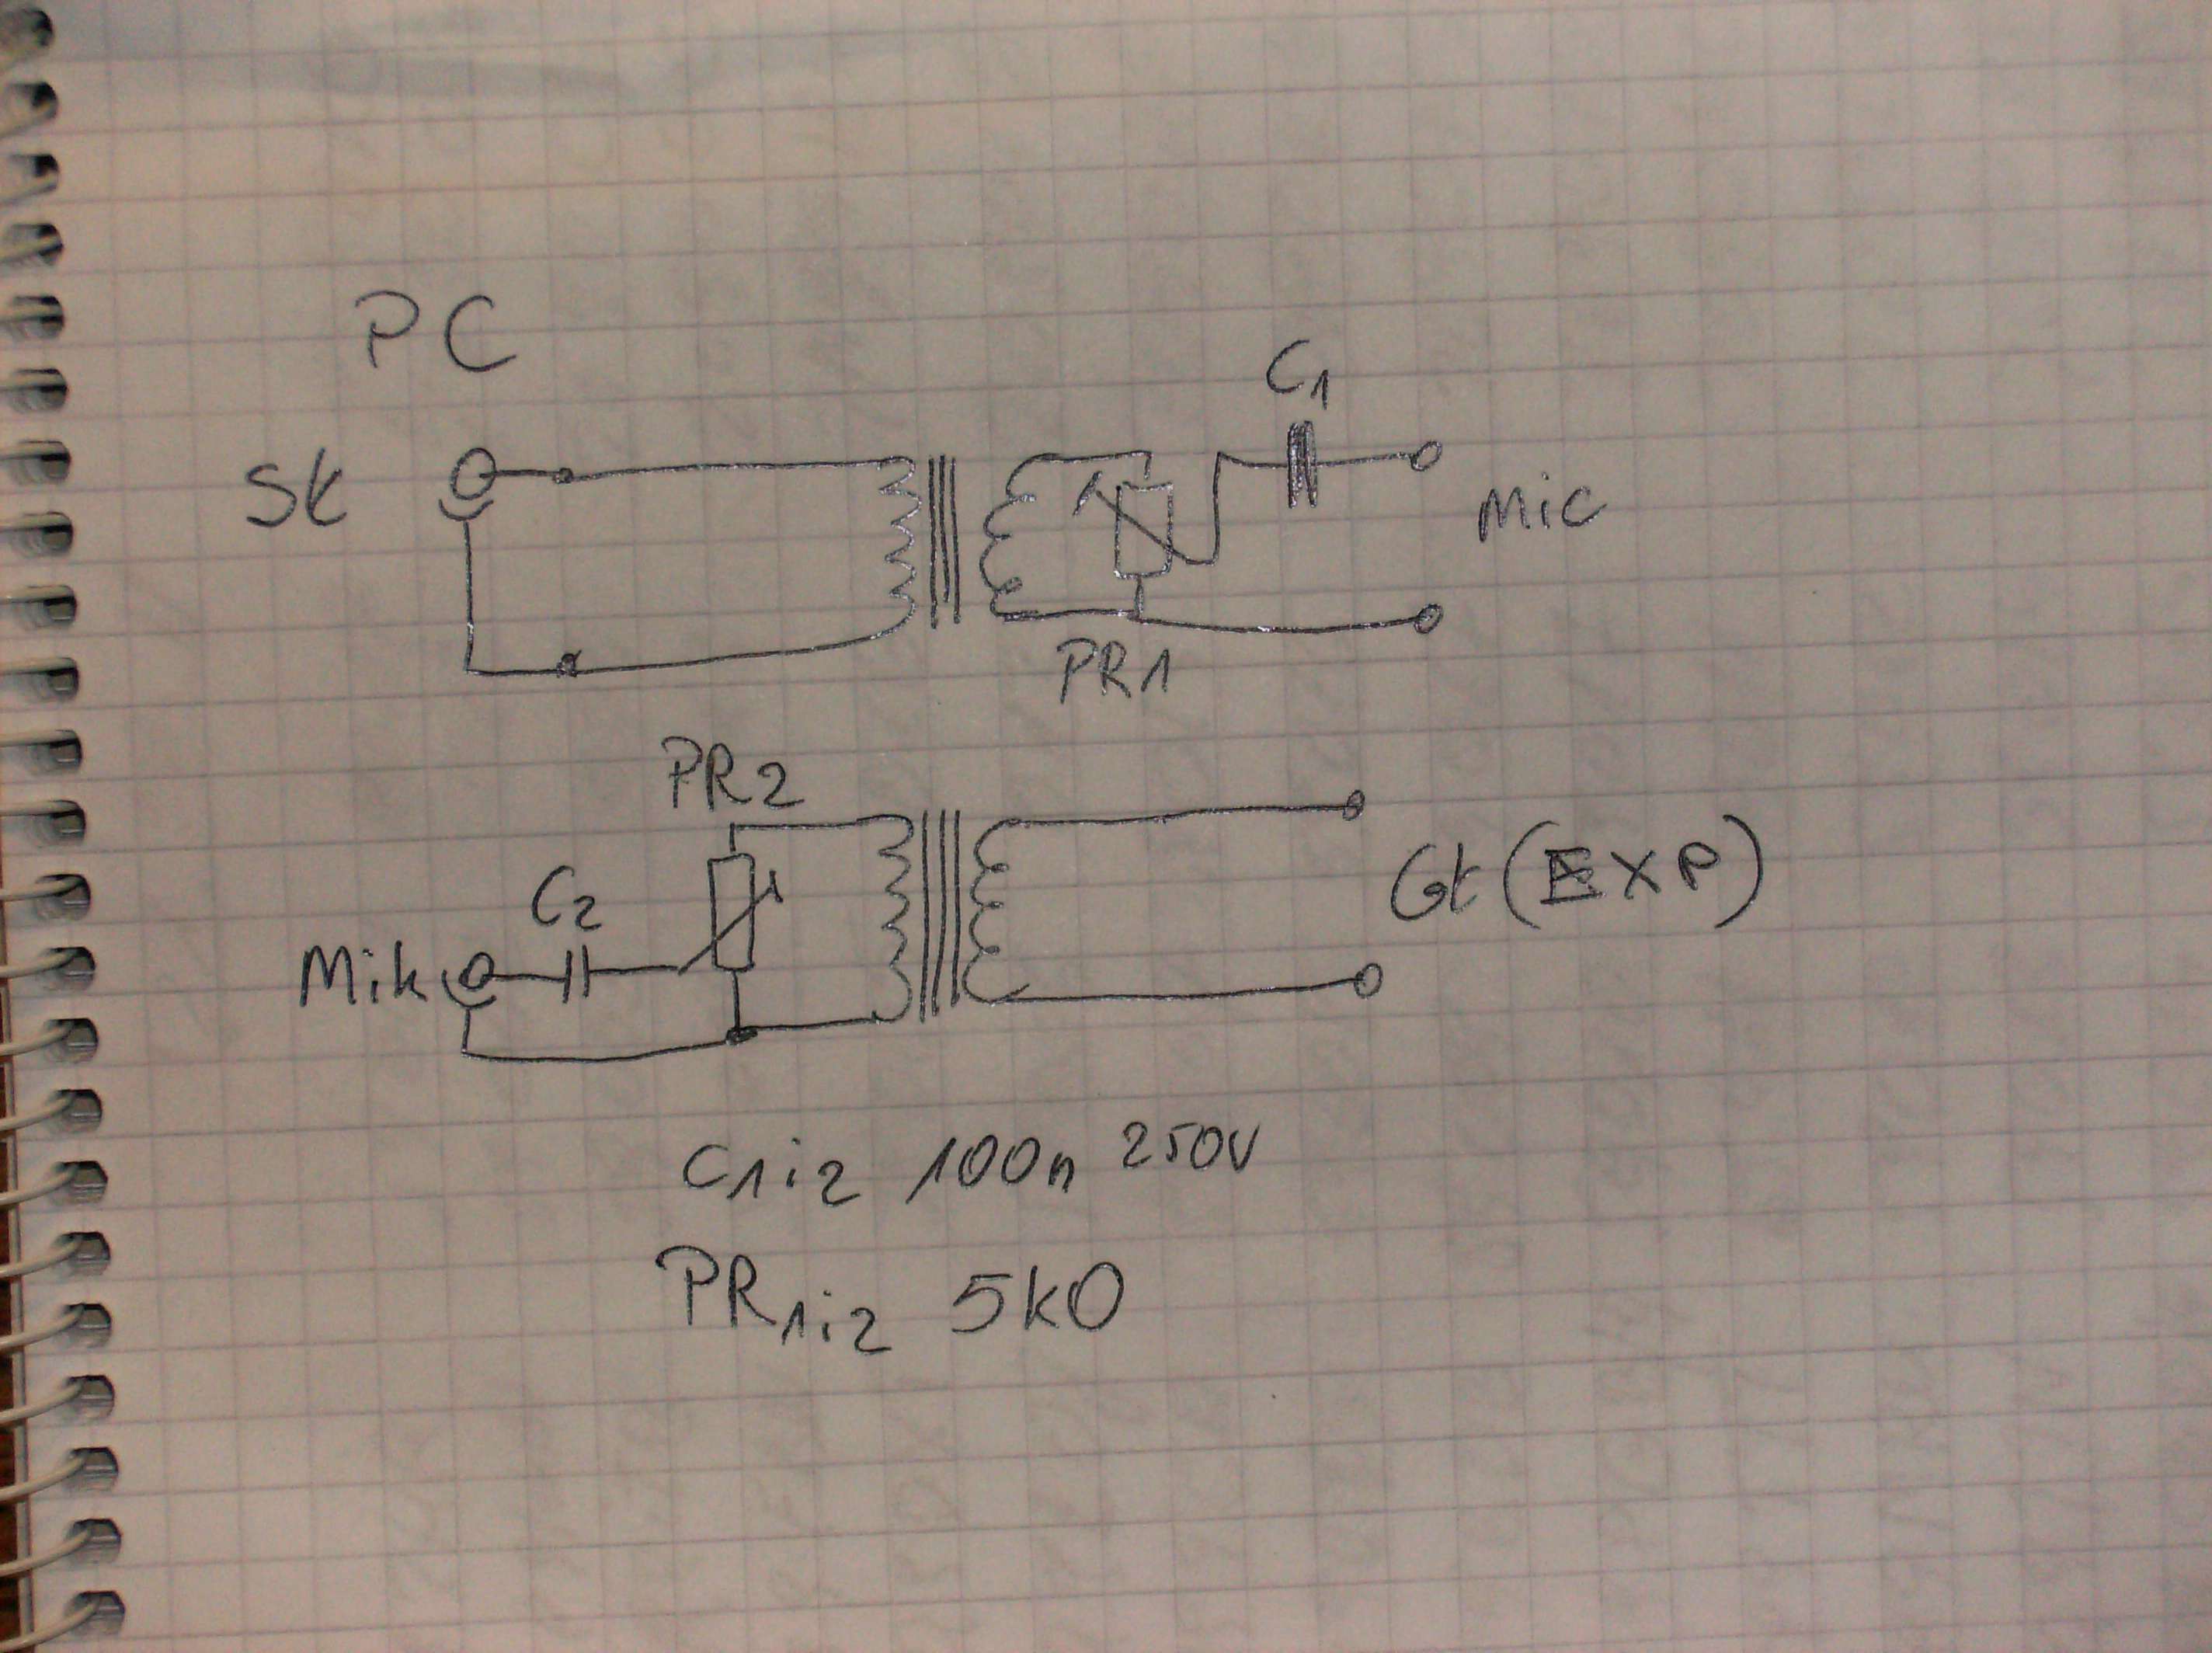 PC
C1
Sk
Mic
PR1
PR2
C2
Gt (EXP)
Mik
C1i2 100n 250V
PR1i2 5kO